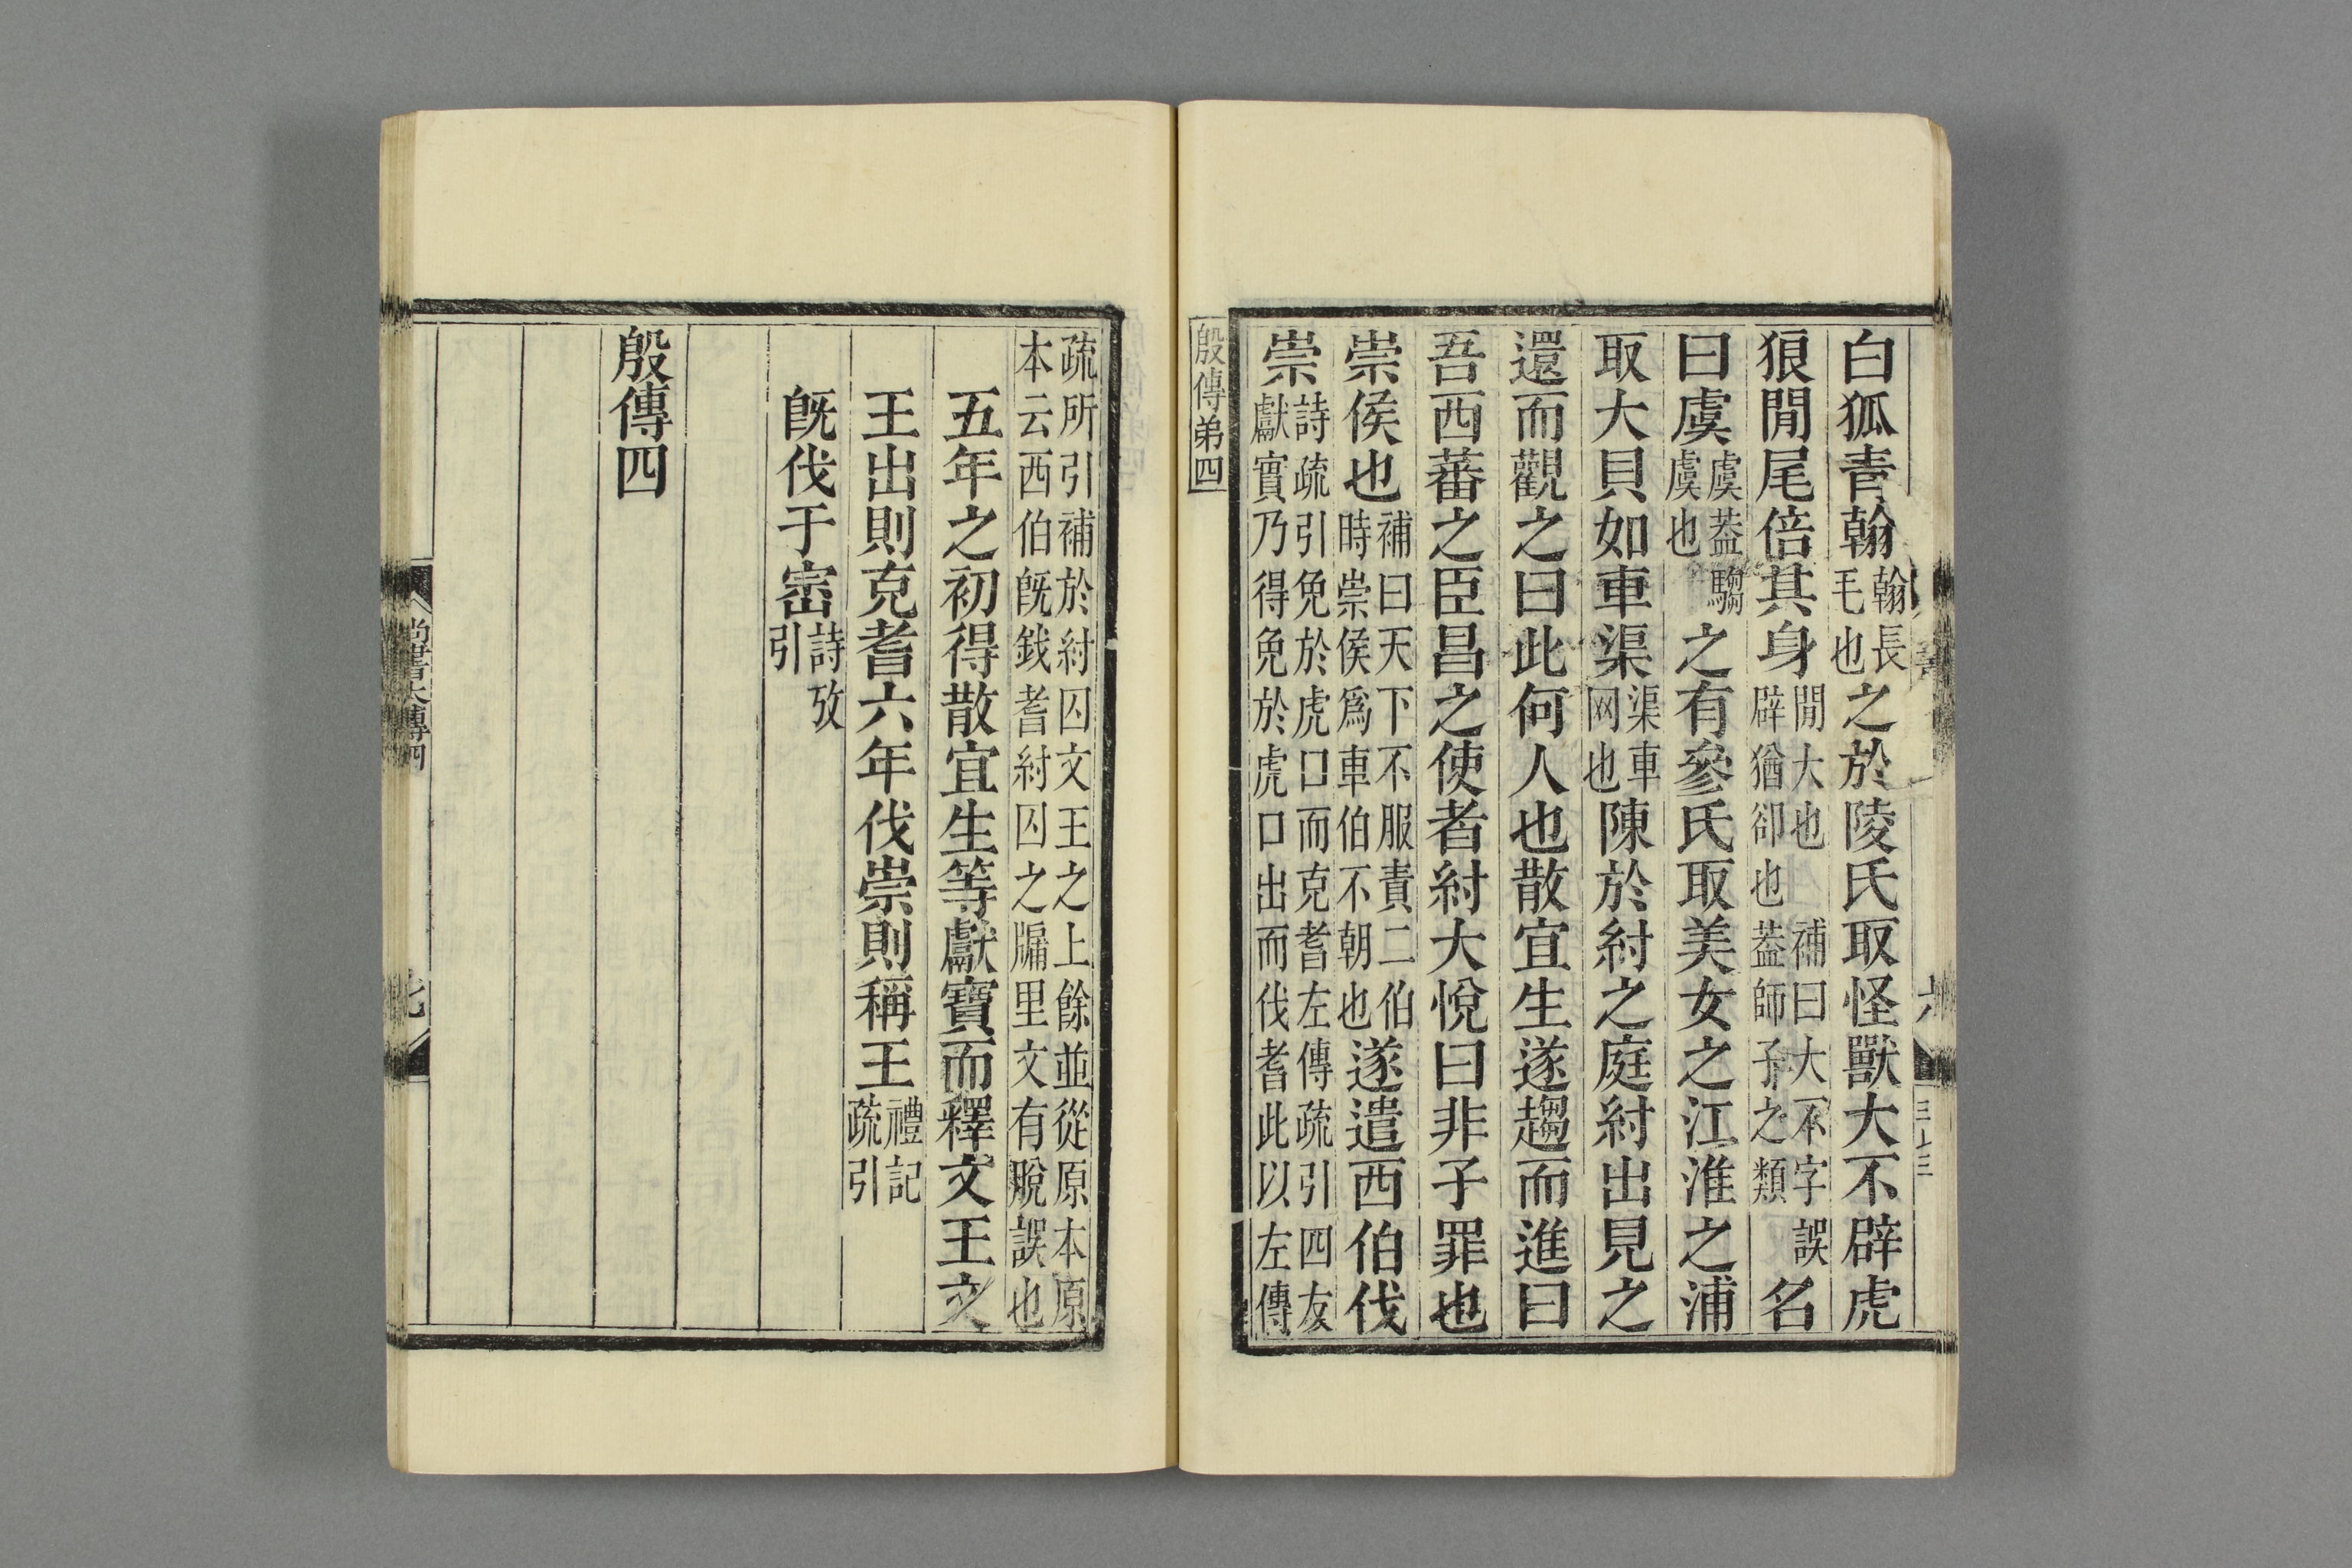 白狐青翰翰長毛也之於陵氏取怪獸大不辟虎
狼閒尾倍其身閒大也辟猶卻也補曰大不字誤葢師子之類名
曰虞虞葢騶虞也之有參氏取美女之江淮之浦
取大貝如車渠渠車网也陳於紂之庭紂出見之
還而觀之曰此何人也散宜生遂趨而進曰
吾西蕃之臣昌之使者紂大悅曰非子罪也
崇侯也補曰天下不服責二伯時崇侯爲車伯不朝也遂遣西伯伐
崇詩疏引免於虎口而克耆左傳疏引四友獻實乃得免於虎口出而伐耆此以左傳
殷傳弟四
疏所引補於紂囚文王之上餘並從原本原本云西伯旣戡耆紂囚之牖里文有脫誤也
五年之初得散宜生等獻寶而釋文王文
王出則克耆六年伐崇則稱王禮記疏引
旣伐于崈詩攷引
殷傳四
尚書大傳四